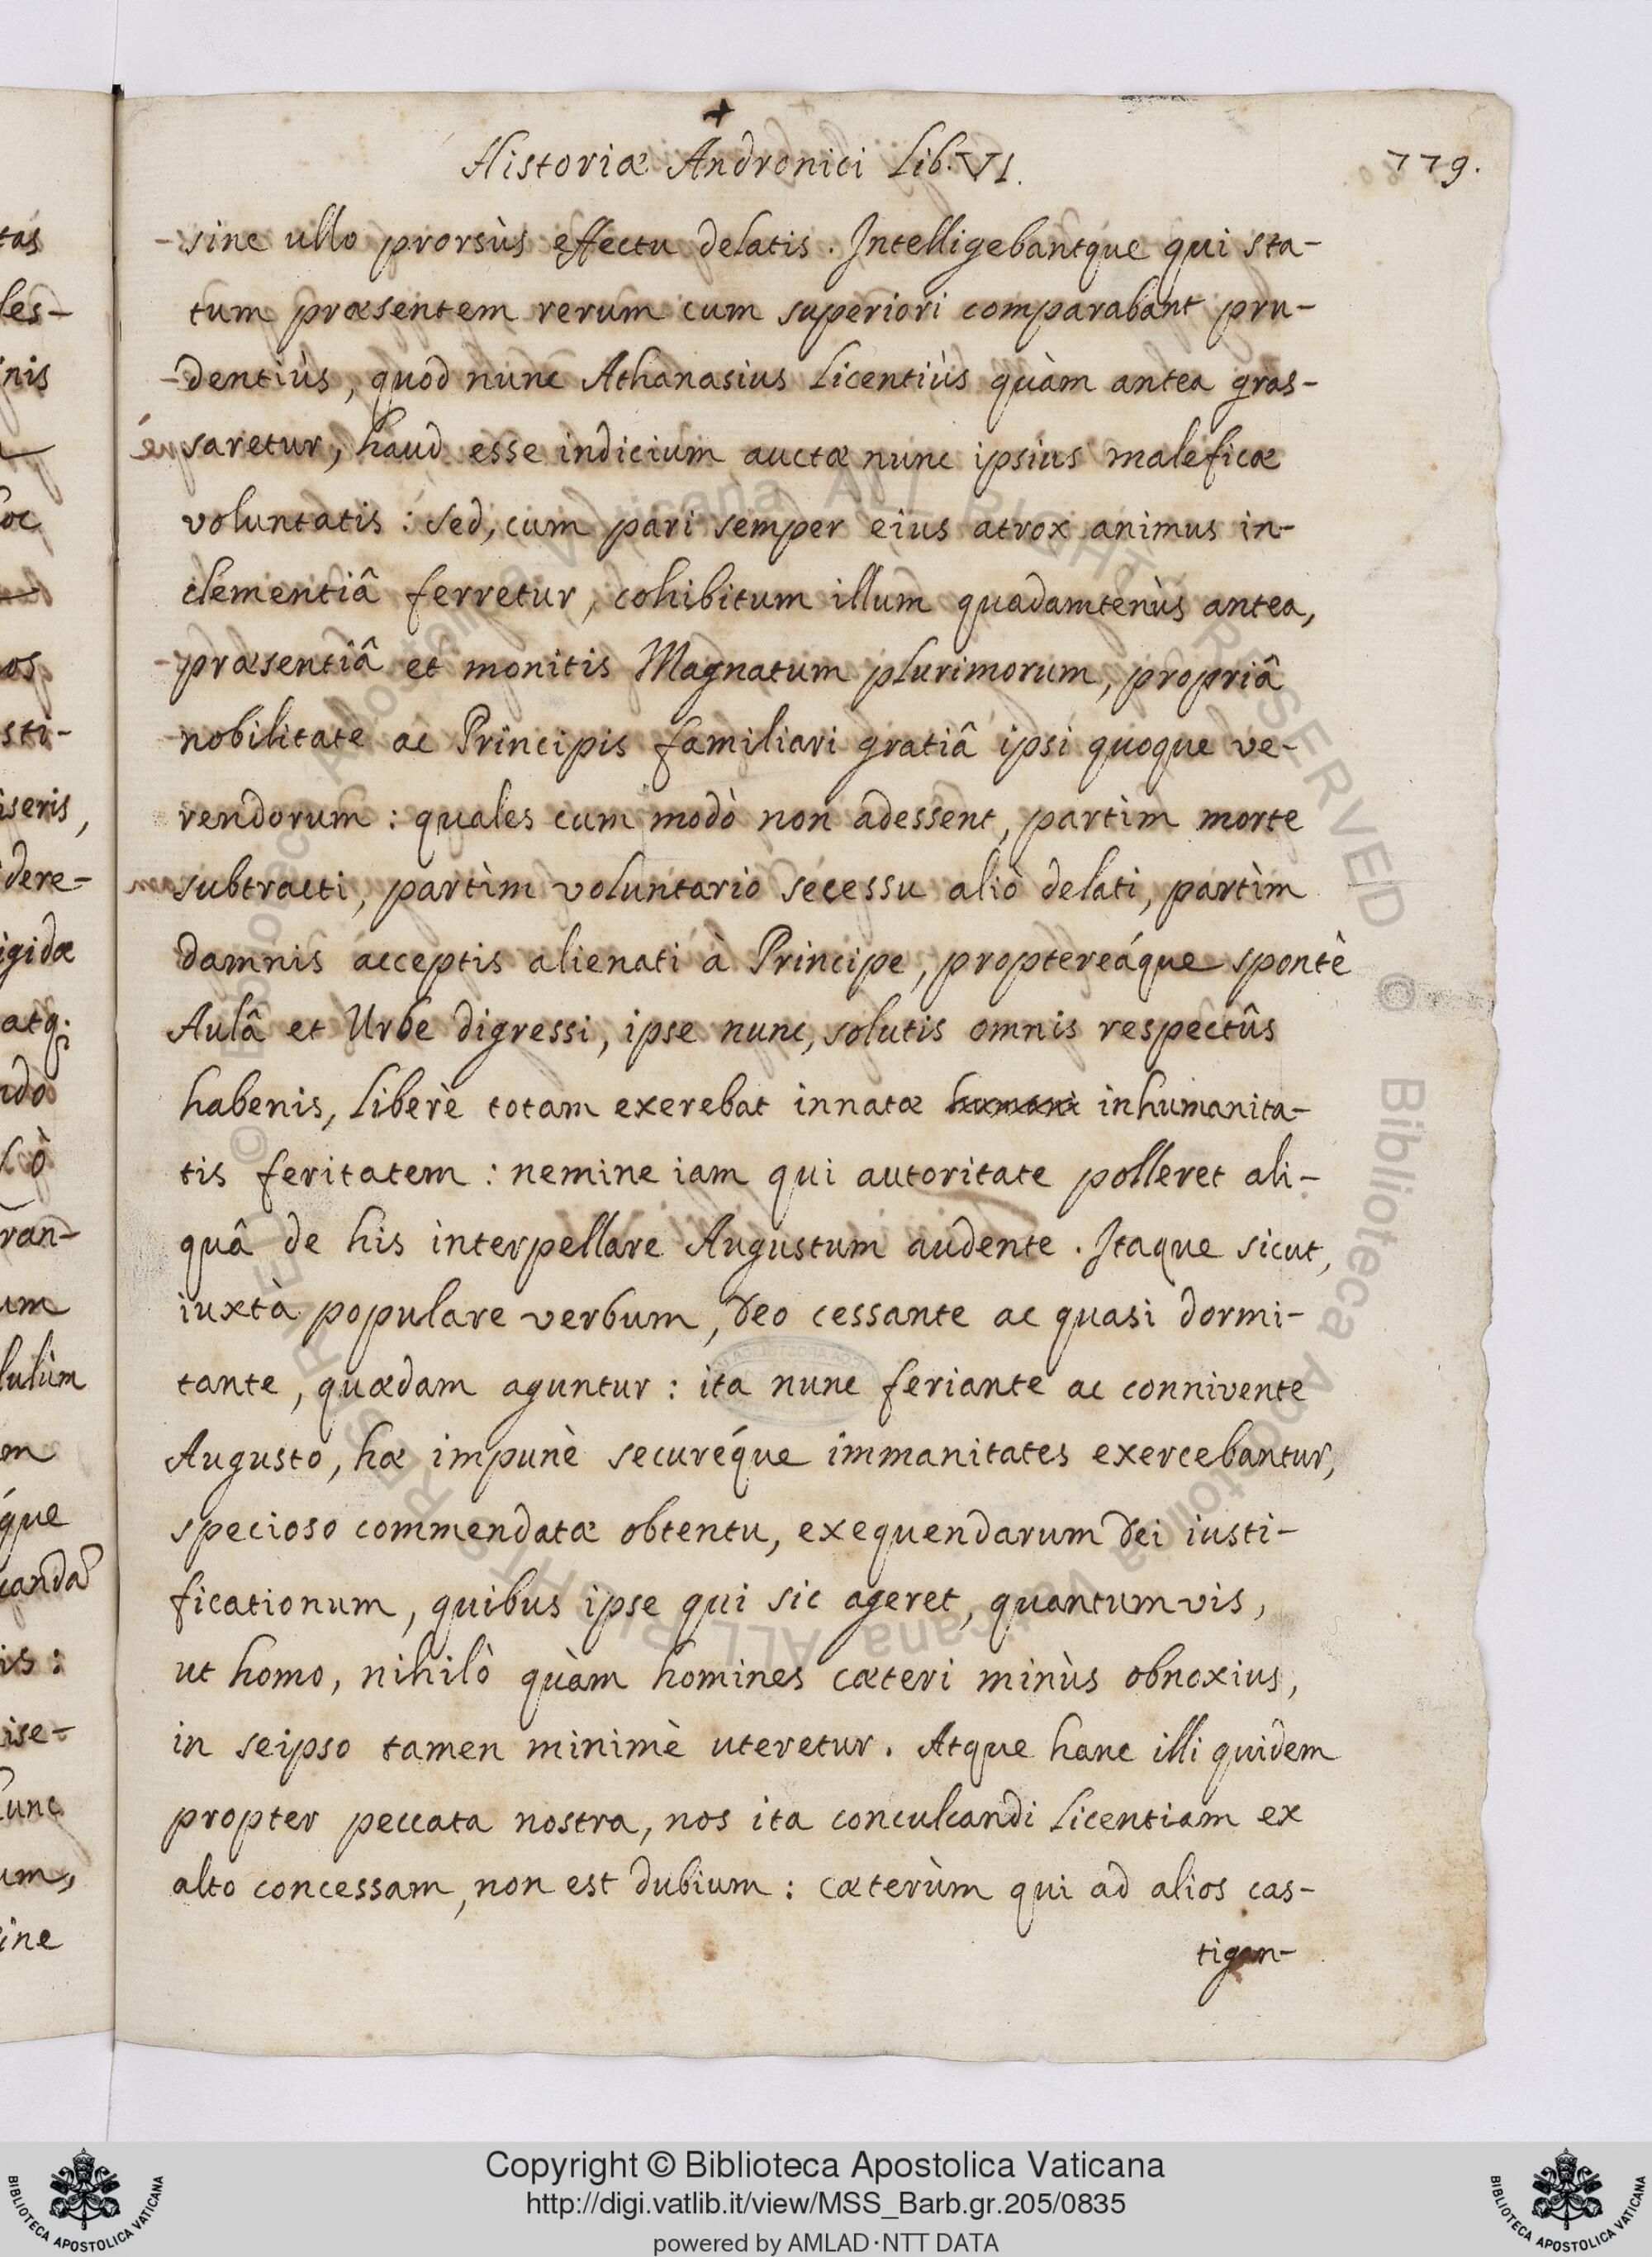 Historiæ Andronici Lib. VI.
779.
sine ullo prorsùs effectu delatis. Intelligebantque qui sta-
tum præsentem rerum cum superiori comparabant pru-
dentiùs, quod nunc Athanasius Licentiùs quàm antea gras-
saretur, haud esse indicium auctæ nunc ipsius maleficæ
voluntatis: sed, cum pari semper eius atrox animus in-
clementiâ ferretur, cohibitum illum quadamtenùs antea,
præsentiâ et monitis Magnatum plurimorum, propriâ
nobilitate ac Principis familiari gratiâ ipsi quoque ve-
rendorum: quales cum modò non adessent, partìm morte
subtracti, partìm voluntario secessu aliò delati, partìm
damnis acceptis alienati à Principe, proptereáque spontè
Aulâ et Urbe digressi, ipse nunc, solutis omnis respectûs
habenis, liberè totam exerebat innatæ humani inhumanita-
tis feritatem: nemine iam qui autoritate polleret ali-
quâ de his interpellare Augustum audente. Itaque sicut,
iuxtà populare verbum, Deo cessante ac quasi dormi-
tante, quædam aguntur: ita nunc feriante ac connivente
Augusto, hæ impunè securéque immanitates exercebantur,
specioso commendatæ obtentu, exequendarum Dei iusti-
ficationum, quibus ipse qui sic ageret, quantumvis,
ut homo, nihilò quàm homines cæteri minùs obnoxius,
in seipso tamen minimè uteretur. Atque hanc illi quidem
propter peccata nostra, nos ita conculcandi licentiam ex
alto concessam, non est dubium: cæterùm qui ad alios cas-
tigan-
tas
les-
nis
oc
os
sti-
iseris,
dere-
igidæ
atq;
ndo
lò
ran-
um
lulùm
em
que
is:
ise-
unc
um,
ine
© Biblioteca Apostolica Vaticana ALL RIGHTS RESERVED
© Biblioteca Apostolica Vaticana ALL RIGHTS RESERVED
Copyright © Biblioteca Apostolica Vaticana
http://digi.vatlib.it/view/MSS_Barb.gr.205/0835
powered by AMLAD·NTT DATA
BIBLIOTECA APOSTOLICA VATICANA
BIBLIOTECA APOSTOLICA VATICANA